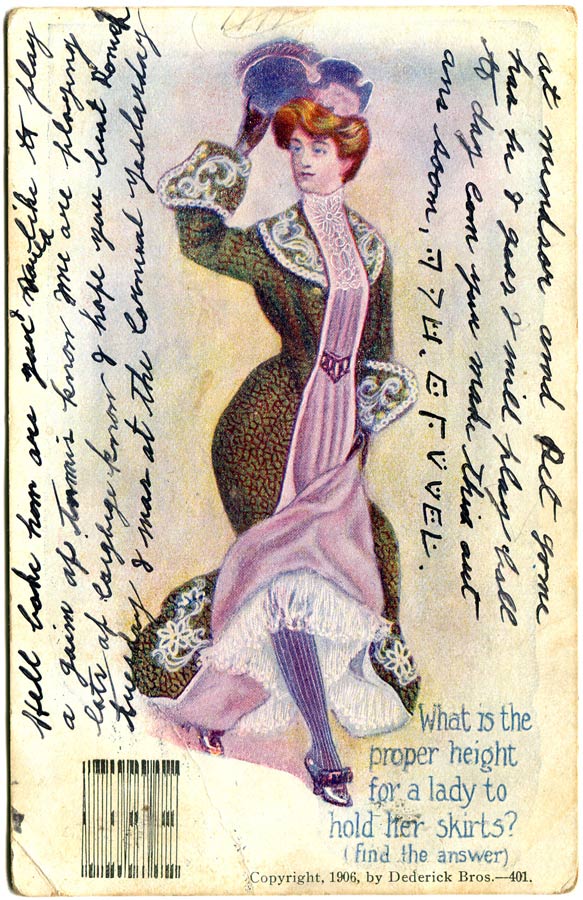 Hell babe how are you like to play
a gaim of tennis know we are playing
lots of know I hope you beat
I was at the yesterday
at windsor and Pet gone
has he I gess I will play ball
to day com you made this out
ans soom,
What is the
proper height
for a lady to
hold her skirts?
(find the answer)
Copyright, 1906, by Dederick Bros.—401.